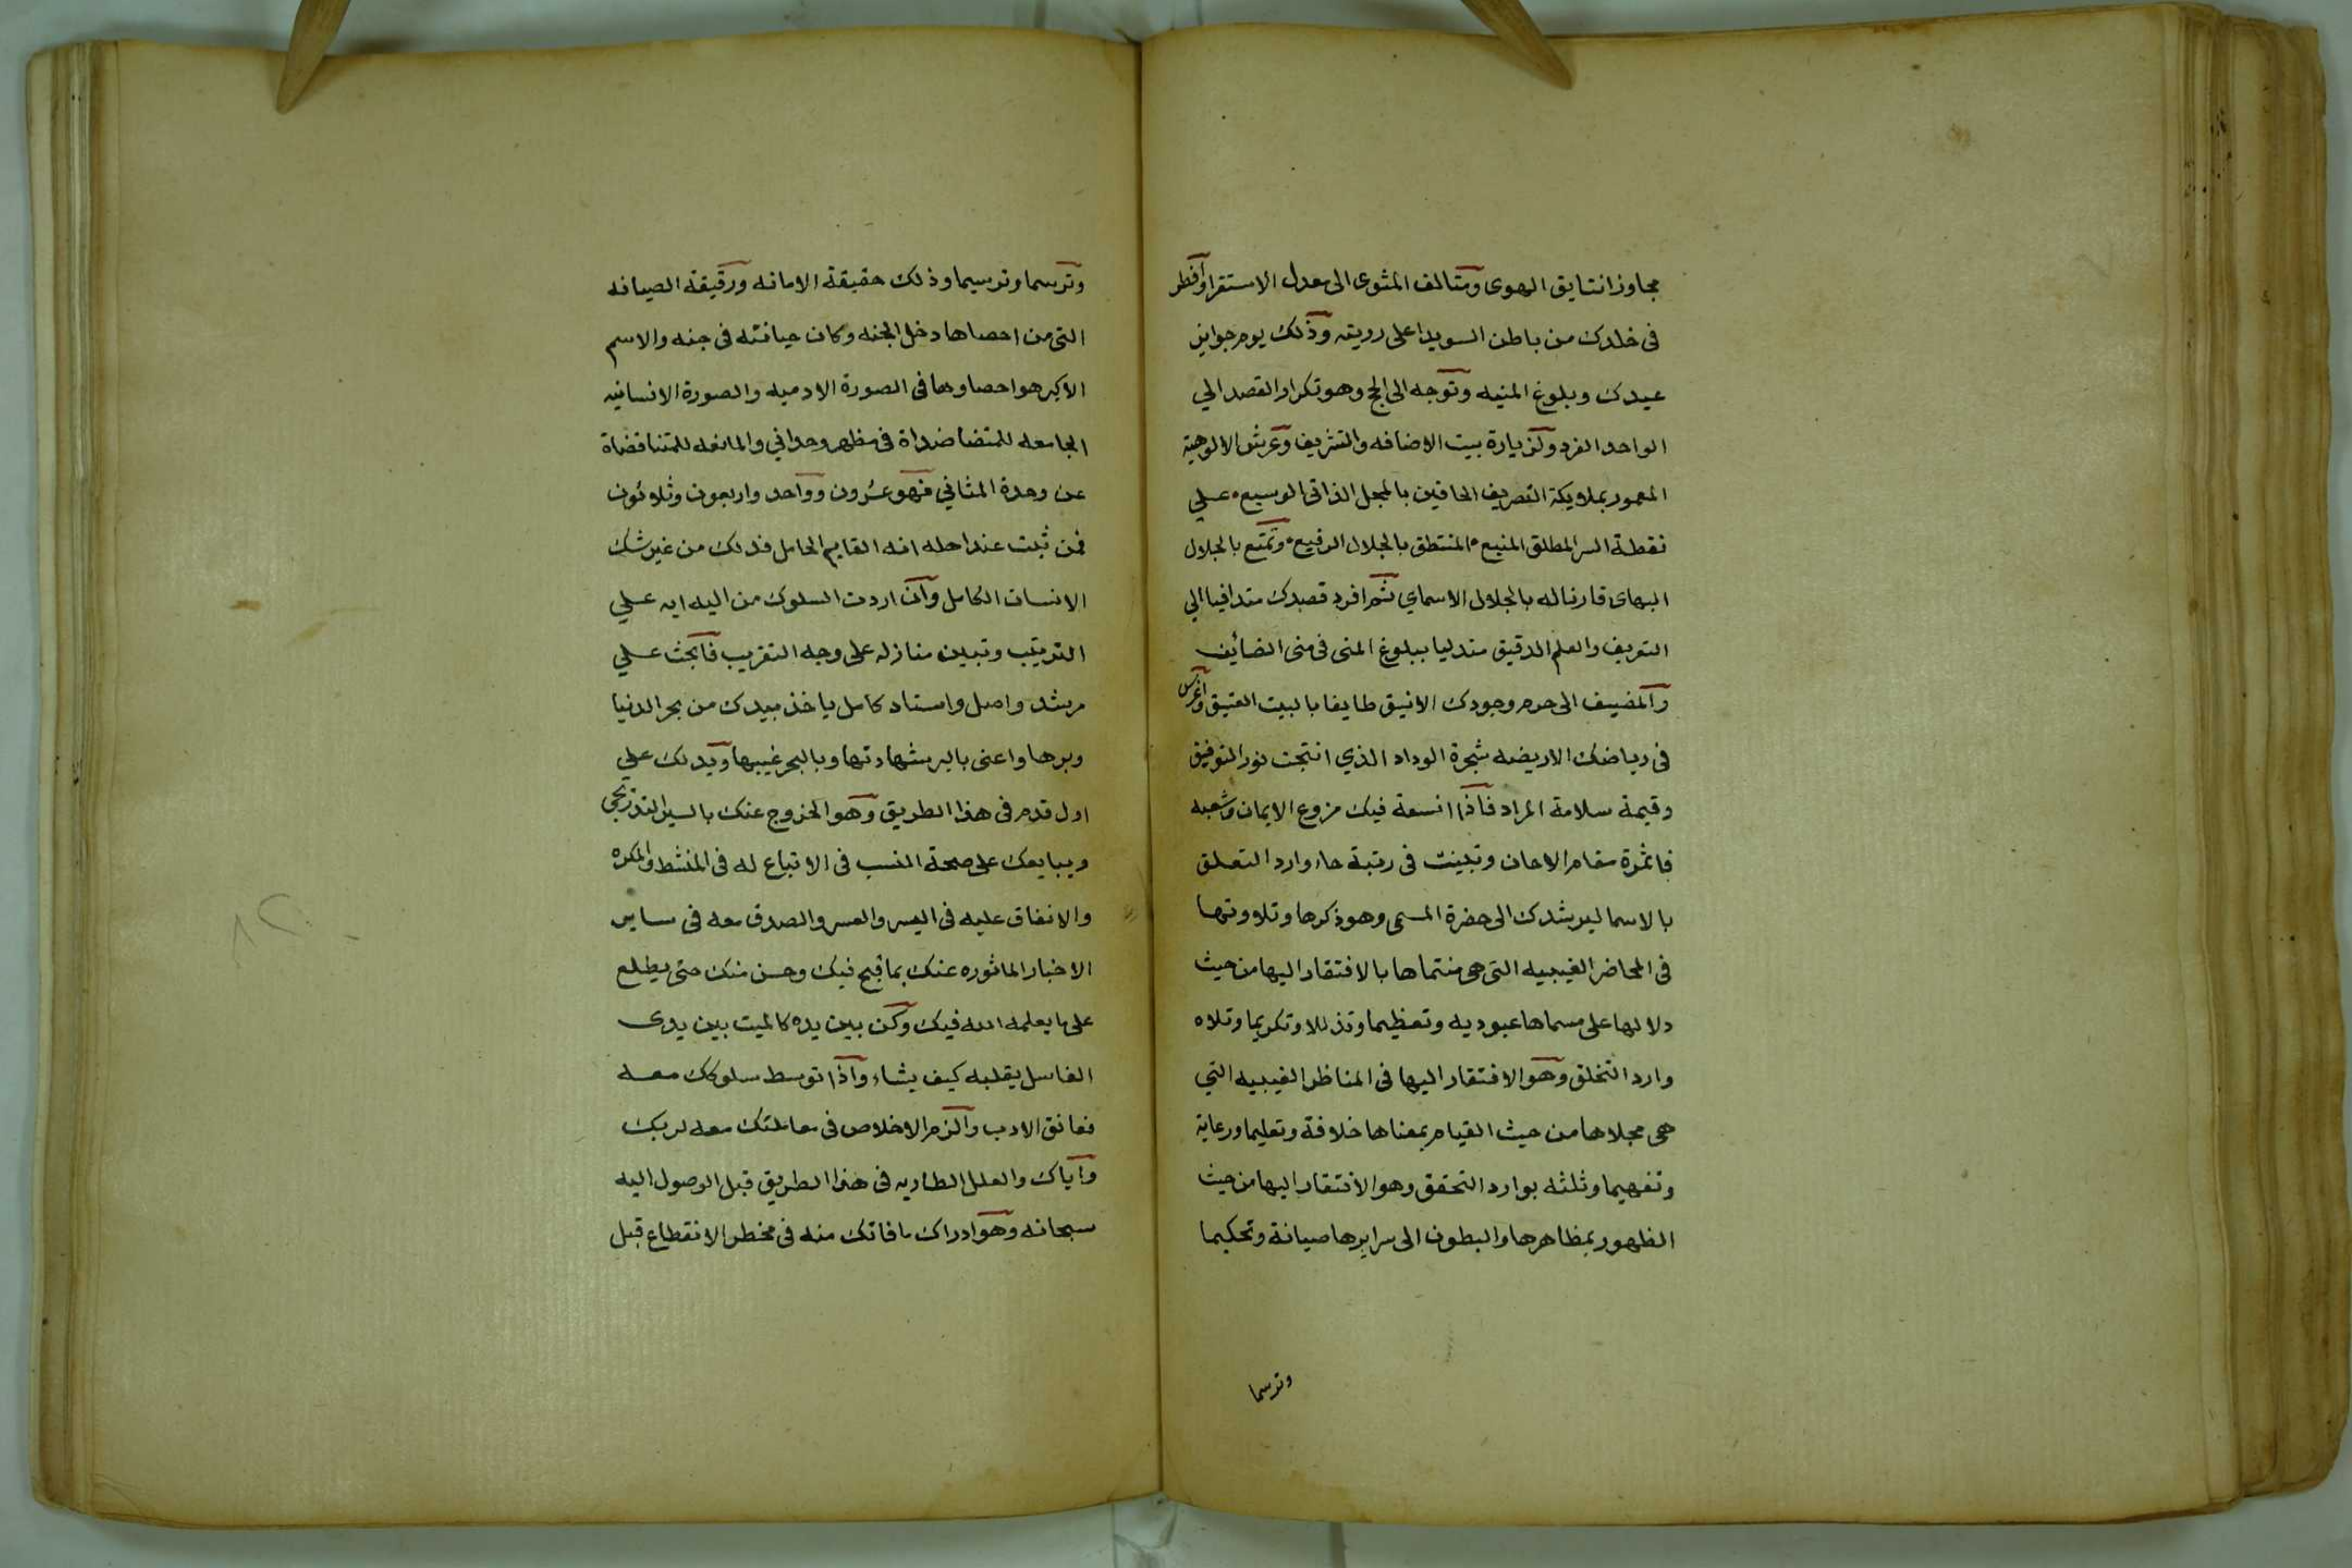 مجاوزا نتايق الهوى ومتالف المثوى الى معدل الاستقرا وافطر
فى خلدك من باطن السويدا على رويته وذلك يوم جواىز
عيدك وبلوغ المنيه وتوجه الى الحج وهو تكرار القصد الي
الواحد الفرد ولزيارة بيت الاضافه والتشريف وعرش الالوهية
المعمور بملايكة التصريف الحافين بالمجل الذاتى الوسيع ه علي
نقطة السر المطلق المنيع ه المنتطق بالجلال الرفيع ه وتمتع بالجلال
البهاى قارناله بالجلال الاسماي ثم افرد قصدك متدافيا الي
التعريف والعلم الدقيق متدليا ببلوغ المنى فى منى الضائف
والمضيف الى حرم وجودك الانيق طايفا بالبيت العتيق واغرس
فى رياضك الاريضه شجرة الوداد الذي انتجت نور التوفيق
وقيمة سلامة المراد فاذا انسعة فيك فروع الايمان وشعبه
فاثمرة مقام الاحان وتبينت فى رتبة حاء وارد التعلق
بالاسما ليرشدك الى حضرة المسمى وهو ذكرها وتلاوتها
فى المحاضر الغيبيه التى هى منتماها بالافتقار اليها من حيث
دلالها على مسماها عبوديه وتعظيما وتذللا وتكريما وتلاه
وارد التخلق وهو الافتقار اليها فى المناظر الغيبيه التي
هى مجلاها من حيث القيام بمعناها خلافة وتعليما ورعاية
وتفهيما وثلثه بوارد التحقق وهو الافتقار اليها من حيث
الظهور بمظاهرها والبطون الى سرايرها صيانة وتحكيما
وترسما
وترسما وترسيما وذلك حقيقة الامانه ورقيقة الصيانه
التى من احصاها دخل الجنه وكان حيانته فى جنه والاسم
الاكبر هو احصاوها فى الصورة الادميه والصورة الانسانيه
الجامعه للمتضاضداة فى مظهر وحداني والمانعه للمتناقضاة
عن وحدة المثاني فهو عشرون وواحد واربعون وثلاثون
فمن ثبت عنداحله انه القايم الحامل فذلك من غير شك
الانسان الكامل وان اردت السلوك من اليه ايه علي
الترتيب وتبين منازله على وجه التقريب فابحث علي
مرشد واصل واستاد كامل ياخذ بيدك من بحر الدنيا
وبرها واعنى بالبر شهادتها وبالبحر غيبها ويدلك علي
اول قدم فى هذا الطريق وهو الخروج عنك بالسير التدريجى
ويبايعك على صحة النسب فى الاتباع له فى المنشط والمكره
والانفاق عليه فى اليسر والعسر والصدق معه فى ساير
الاخبار الماثوره عنك بما قبح فيك وحسن منك حتى يطلع
على ما يعلمه الله فيك وكن بين يده كالميت بين يدى
الغاسل يقلبه كيف يشاء واذا توسط سلوكك معه
فعانق الادب والزم الاخلاص فى معاملتك معه لربك
واياك والعلل الطاريه فى هذا الطريق قبل الوصول اليه
سبحانه وهو ادراك ما فاتك منه فى مخطر الانقطاع قبل